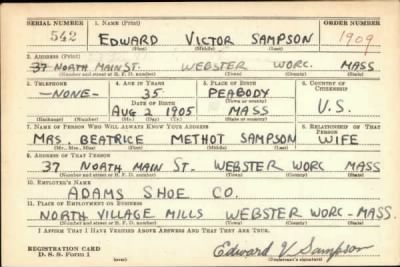 SERIAL NUMBER 1. NAME (Print) ORDER NUMBER
542 EDWARD VICTOR SAMPSON 1909
(First) (Middle) (Last)
2. ADDRESS (Print)
37 NORTH MAIN ST. WEBSTER WORC. MASS
(Number and street or R. F. D. number) (Town) (County) (State)
3. TELEPHONE 4. AGE IN YEARS 5. PLACE OF BIRTH 6. COUNTRY OF CITIZENSHIP
-NONE- 35 PEABODY
DATE OF BIRTH (Town or county)
AUG 2 1905 MASS U.S.
(Exchange) (Number) (Mo.) (Day) (Yr.) (State or country)
7. NAME OF PERSON WHO WILL ALWAYS KNOW YOUR ADDRESS 8. RELATIONSHIP OF THAT PERSON
MRS. BEATRICE METHOT SAMPSON WIFE
(Mr., Mrs., Miss) (First) (Middle) (Last)
9. ADDRESS OF THAT PERSON
37 NORTH MAIN ST. WEBSTER WORC MASS
(Number and street or R. F. D. number) (Town) (County) (State)
10. EMPLOYER'S NAME
ADAMS SHOE CO.
11. PLACE OF EMPLOYMENT OR BUSINESS
NORTH VILLAGE MILLS WEBSTER WORC-MASS.
(Number and street or R. F. D. number) (Town) (County) (State)
I AFFIRM THAT I HAVE VERIFIED ABOVE ANSWERS AND THAT THEY ARE TRUE.
REGISTRATION CARD Edward V. Sampson
D. S. S. Form 1 (Registrant's signature)